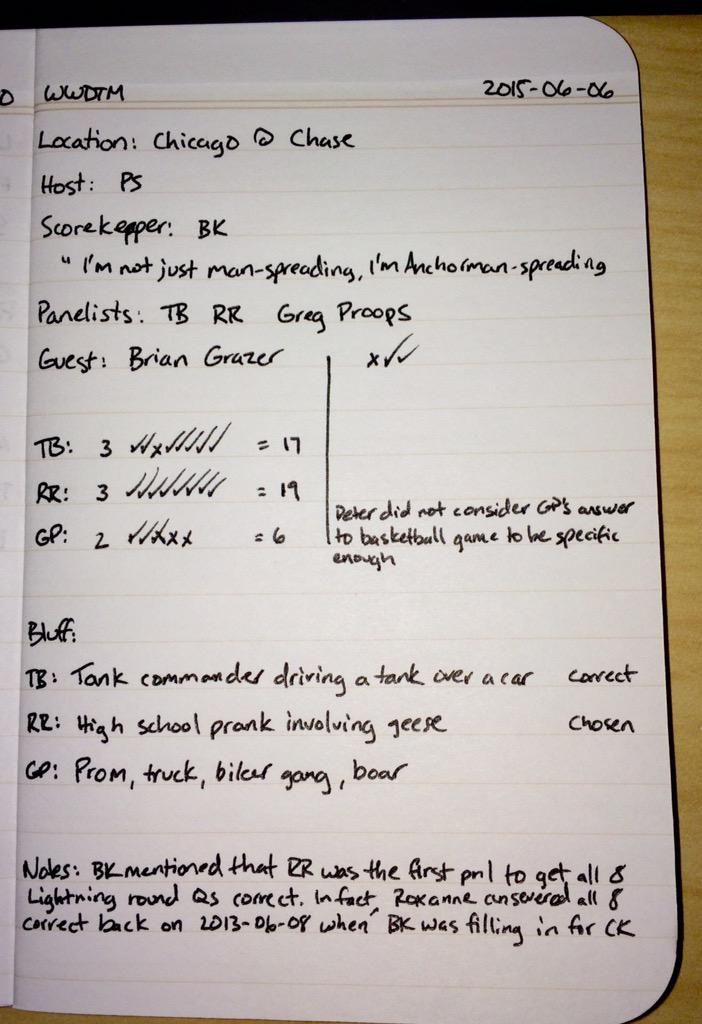 WWDTM 2015-06-06
Location: Chicago @ Chase
Host: PS
Scorekepper: BK
" I'm not just man-spreading, I'm Anchorman-spreading
Panelists: TB RR Greg Proops
Guest: Brian Grazer x✓✓
TB: 3 ✓✓x✓✓✓✓✓ = 17
RR: 3 ✓✓✓✓✓✓✓✓ = 19
GP: 2 ✓✓xxx = 6
Peter did not consider GP's answer
to basketball game to be specific
enough
Bluff:
TB: Tank commander driving a tank over a car correct
RR: High school prank involving geese chosen
GP: Prom, truck, biker gang, boar
Notes: BK mentioned that RR was the first pnl to get all 8
Lightning round Qs correct. In fact, Roxanne answered all 8
correct back on 2013-06-08 when BK was filling in for CK